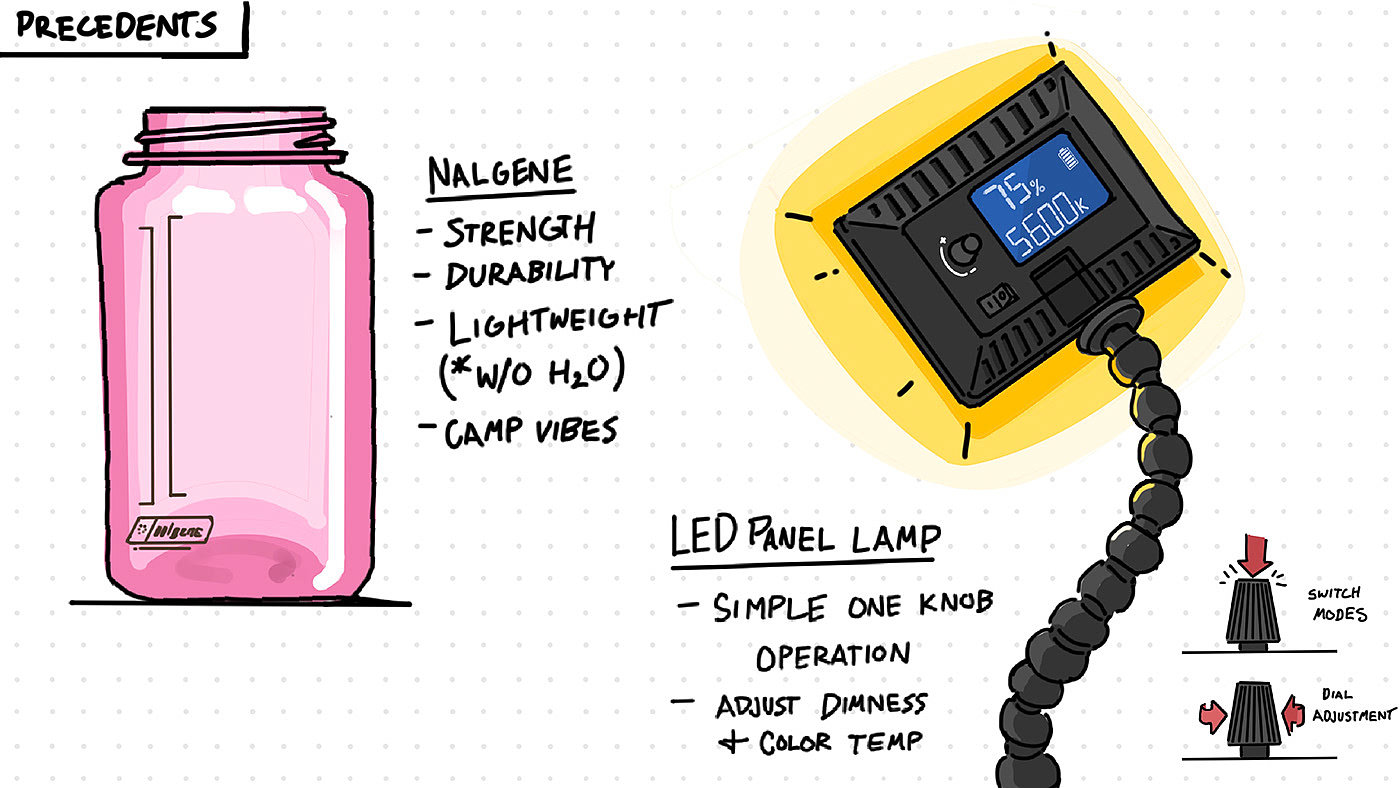 PRECEDENTS
NALGENE
- STRENGTH
- DURABILITY
- LIGHTWEIGHT
(*W/O H₂O)
- CAMP VIBES
Nalgene
75%
5600K
LED PANEL LAMP
- SIMPLE ONE KNOB
OPERATION
- ADJUST DIMNESS
+ COLOR TEMP
SWITCH
MODES
DIAL
ADJUSTMENT